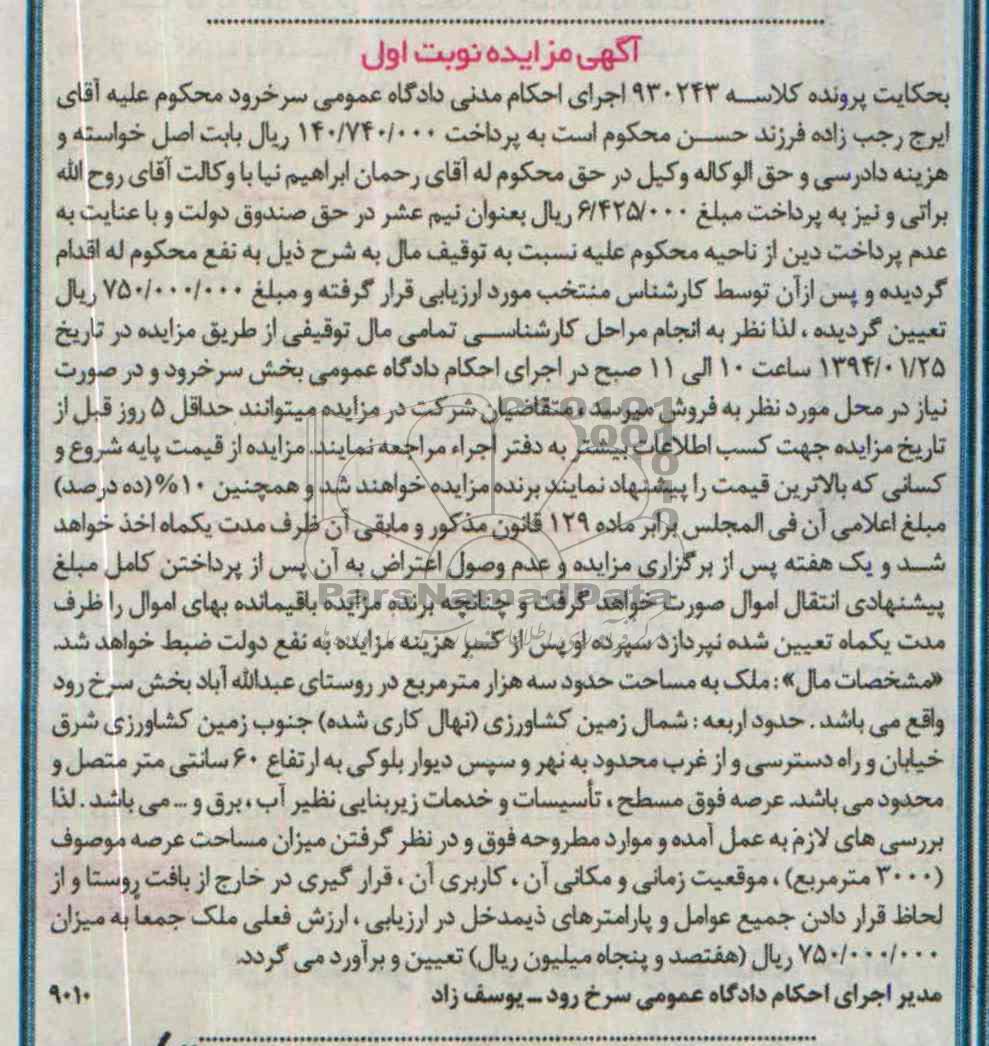 آگهی مزایده نوبت اول
بحکایت پرونده کلاسه ۹۳۰۲۴۳ اجرای احکام مدنی دادگاه عمومی سرخرود محکوم علیه آقای
ایرج رجب زاده فرزند حسن محکوم است به پرداخت ۱۴۰/۷۴۰/۰۰۰ ریال بابت اصل خواسته و
هزینه دادرسی و حق الوکاله وکیل در حق محکوم له آقای رحمان ابراهیم نیا با وکالت آقای روح الله
براتی و نیز به پرداخت مبلغ ۶/۴۲۵/۰۰۰ ریال بعنوان نیم عشر در حق صندوق دولت و با عنایت به
عدم پرداخت دین از ناحیه محکوم علیه نسبت به توقیف مال به شرح ذیل به نفع محکوم له اقدام
گردیده و پس ازآن توسط کارشناس منتخب مورد ارزیابی قرار گرفته و مبلغ ۷۵۰/۰۰۰/۰۰۰ ریال
تعیین گردیده ، لذا نظر به انجام مراحل کارشناسی تمامی مال توقیفی از طریق مزایده در تاریخ
۱۳۹۴/۰۱/۲۵ ساعت ۱۰ الی ۱۱ صبح در اجرای احکام دادگاه عمومی بخش سرخرود و در صورت
نیاز در محل مورد نظر به فروش میرسد ، متقاضیان شرکت در مزایده میتوانند حداقل ۵ روز قبل از
تاریخ مزایده جهت کسب اطلاعات بیشتر به دفتر اجراء مراجعه نمایند. مزایده از قیمت پایه شروع و
کسانی که بالاترین قیمت را پیشنهاد نمایند برنده مزایده خواهند شد و همچنین ۱۰% (ده درصد)
مبلغ اعلامی آن فی المجلس برابر ماده ۱۲۹ قانون مذکور و مابقی آن ظرف مدت یکماه اخذ خواهد
شد و یک هفته پس از برگزاری مزایده و عدم وصول اعتراض به آن پس از پرداختن کامل مبلغ
پیشنهادی انتقال اموال صورت خواهد گرفت و چنانچه برنده مزایده باقیمانده بهای اموال را ظرف
ParsNamadData
مدت یکماه تعیین شده نپردازد سپرده او پس از کسر هزینه مزایده به نفع دولت ضبط خواهد شد.
«مشخصات مال» : ملک به مساحت حدود سه هزار مترمربع در روستای عبدالله آباد بخش سرخ رود
واقع می باشد . حدود اربعه : شمال زمین کشاورزی (نهال کاری شده) جنوب زمین کشاورزی شرق
خیابان و راه دسترسی و از غرب محدود به نهر و سپس دیوار بلوکی به ارتفاع ۶۰ سانتی متر متصل و
محدود می باشد. عرصه فوق مسطح ، تأسیسات و خدمات زیربنایی نظیر آب ، برق و ... می باشد . لذا
بررسی های لازم به عمل آمده و موارد مطروحه فوق و در نظر گرفتن میزان مساحت عرصه موصوف
(۳۰۰۰ مترمربع) ، موقعیت زمانی و مکانی آن ، کاربری آن ، قرار گیری در خارج از بافت روستا و از
لحاظ قرار دادن جمیع عوامل و پارامترهای ذیمدخل در ارزیابی ، ارزش فعلی ملک جمعاً به میزان
۷۵۰/۰۰۰/۰۰۰ ریال (هفتصد و پنجاه میلیون ریال) تعیین و برآورد می گردد.
مدیر اجرای احکام دادگاه عمومی سرخ رود ـ یوسف زاد ۹۰۱۰